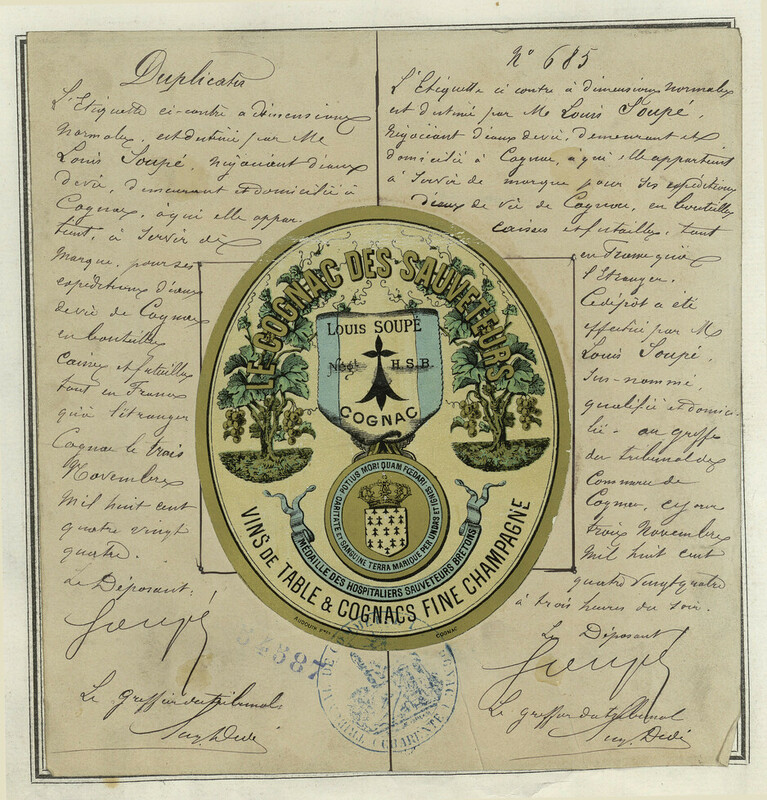 Duplicata
L'Etiquette ci-contre a dimensions
Normales, est destiné par Me
Louis Soupé, négociant d'eaux
de vie, demeurant et domicilié à
Cognac, à qui elle appar-
tient, à servir de
Marque, pour ses
expéditions d'eaux
de vie de Cognac
en bouteilles
Caisses et futailles
tant en France
qu'à l'étranger
Cognac le trois
Novembre
Mil huit cent
quatre vingt
quatre.
Le Déposant:
Soupé
Le greffier du tribunal
N° 685
L'Etiquette ci contre à dimensions Normales
est destiné par Me Louis Soupé,
Négociant d'eaux de vie, demeurant et
domicilié à Cognac, à qui elle appartient
à servir de marque pour ses expéditions
d'eaux de vie de Cognac, en bouteilles
caisses et futailles, tant
en France qu'à
l'étranger.
Ce dépôt a été
effectué par M
Louis Soupé,
sus-nommé,
qualifié et domici-
lié - au greffe
du tribunal de
Commerce de
Cognac, ce jour
trois Novembre
Mil huit cent
quatre vingt quatre
à trois heures du soir.
Le Déposant
Soupé
Le greffier du tribunal
LE COGNAC DES SAUVETEURS
LOUIS SOUPÉ
Négt H.S.B.
COGNAC
POTIUS MORI QUAM FŒDARI
CARITATE ET SANGUINE TERRA MARIQUE PER UNDAS ET IGNES
MÉDAILLE DES HOSPITALIERS SAUVETEURS BRETONS
VINS DE TABLE & COGNACS FINE CHAMPAGNE
COGNAC
54587
CHARENTE